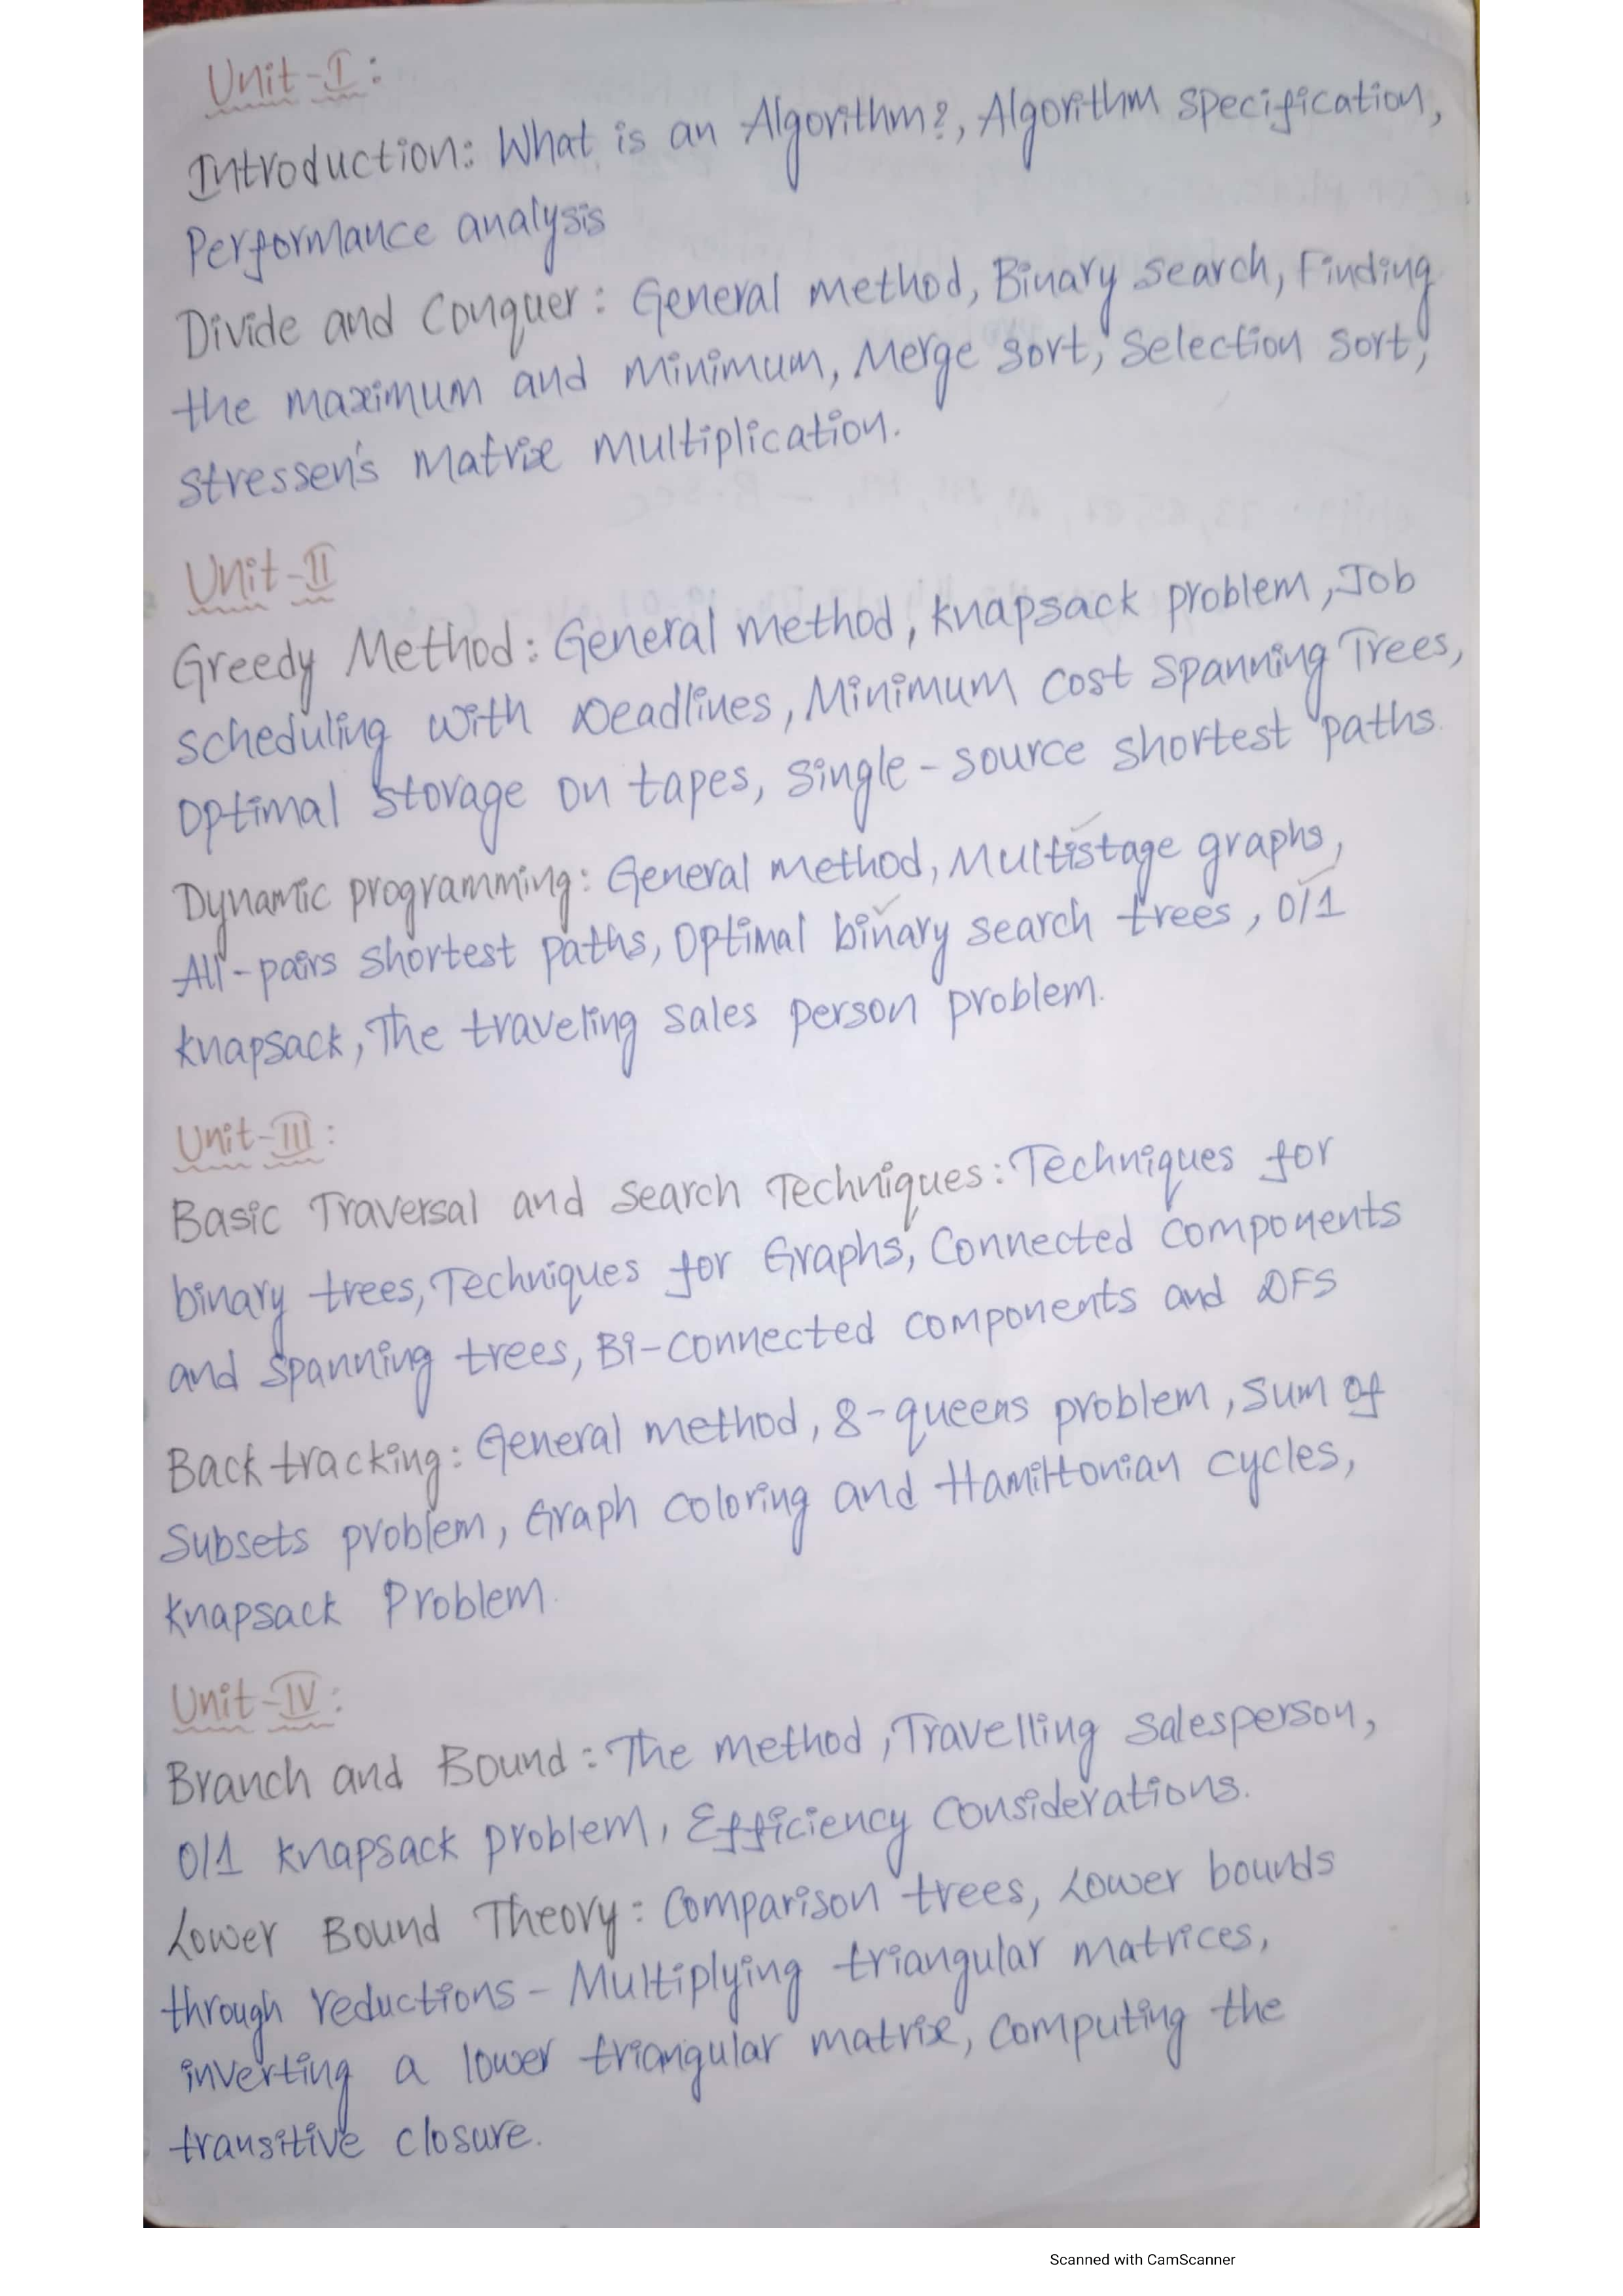 Unit-I:
Introduction: What is an Algorithm?, Algorithm specification,
Performance analysis
Divide and Conquer: General method, Binary search, Finding
the maximum and minimum, Merge sort, Selection sort,
Stressen's Matrix Multiplication.
Unit-II
Greedy Method: General method, knapsack problem, Job
scheduling with Deadlines, Minimum cost spanning Trees,
Optimal storage on tapes, single-source shortest paths.
Dynamic programming: General method, Multistage graphs,
All-pairs shortest paths, Optimal binary search trees, 0/1
knapsack, The traveling sales person problem.
Unit-III:
Basic Traversal and search Techniques: Techniques for
binary trees, Techniques for Graphs, Connected components
and spanning trees, Bi-connected components and DFS
Back tracking: General method, 8-queens problem, sum of
subsets problem, Graph coloring and Hamiltonian cycles,
knapsack Problem.
Unit-IV:
Branch and Bound: The method, Travelling salesperson,
0/1 knapsack problem, Efficiency considerations.
Lower Bound Theory: Comparison trees, Lower bounds
through reductions - Multiplying triangular matrices,
inverting a lower triangular matrix, computing the
transitive closure.
Scanned with CamScanner